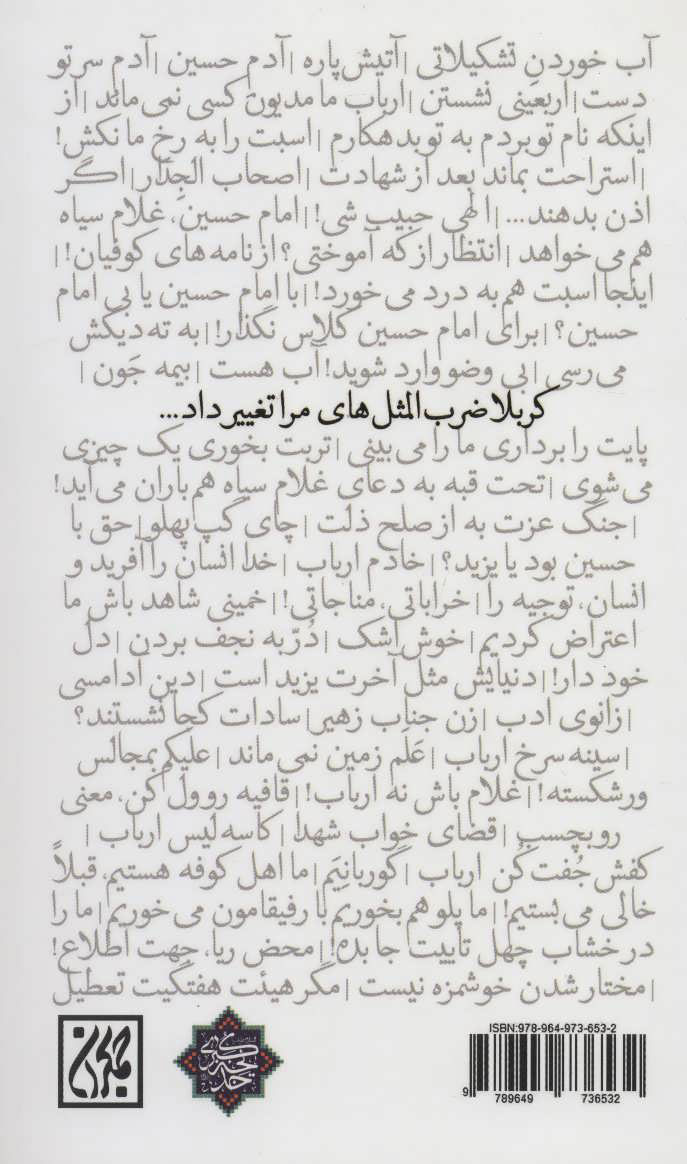 آب خوردنِ تشکیلاتی | آتیش‌پاره | آدمِ حسین | آدمِ سر تو
دست | اربعینی نشستن | ارباب ما مدیون کسی نمی‌ماند | از
اینکه نام تو بردم به تو بدهکارم | اسبت را به رخ ما نکش!
| استراحت بماند بعد از شهادت | اصحاب الجِدار | اگر
اذن بدهند... | الهی حبیب شی! | امام حسین، غلام سیاه
هم می‌خواهد | انتظار از که آموختی؟ از نامه‌های کوفیان! |
اینجا اسبت هم به درد می‌خورد! | با امام حسین یا بی امام
حسین؟ | برای امام حسین کلاس نگذار! | به ته دیگش
می‌رسی | بی وضو وارد شوید! آب هست | بیمه جَون |
کربلا ضرب‌المثل‌های مرا تغییر داد...
پایت را برداری ما را می‌بینی | تربت بخوری یک چیزی
می‌شوی | تحت قبه به دعای غلام سیاه هم باران می‌آید!
| جنگ عزت به از صلح ذلت | چای کپ پهلو | حق با
حسین بود یا یزید؟ | خادم ارباب | خدا انسان را آفرید و
انسان، توجیه را | خراباتی، مناجاتی! | خمینی شاهد باش ما
اعتراض کردیم | خوش اشک | دُرّ به نجف بردن | دل
خود دار! | دنیایش مثل آخرت یزید است | دین آدامسی
| زانوی ادب | زن جناب زهیر | سادات کجا نشستند؟
| سینه سرخ ارباب | عَلَم زمین نمی‌ماند | علیکم بمجالس
ورشکسته! | غلام باش نه ارباب! | قافیه رو ول کن، معنی
رو بچسب | قضای خواب شهدا | کاسه لیس ارباب |
کفش جُفت کُن ارباب | گوربانِیَم | ما اهل کوفه هستیم، قبلاً
خالی می‌بستیم! | ما پلو هم بخوریم با رفیقامون می‌خوریم | ما را
در خشاب چهل تاییت جا بده! | محض ریا، جهت اطلاع!
| مختار شدن خوشمزه نیست | مگر هیئت هفتگیت تعطیل
جمکران
ISBN:978-964-973-653-2
9 789649 736532